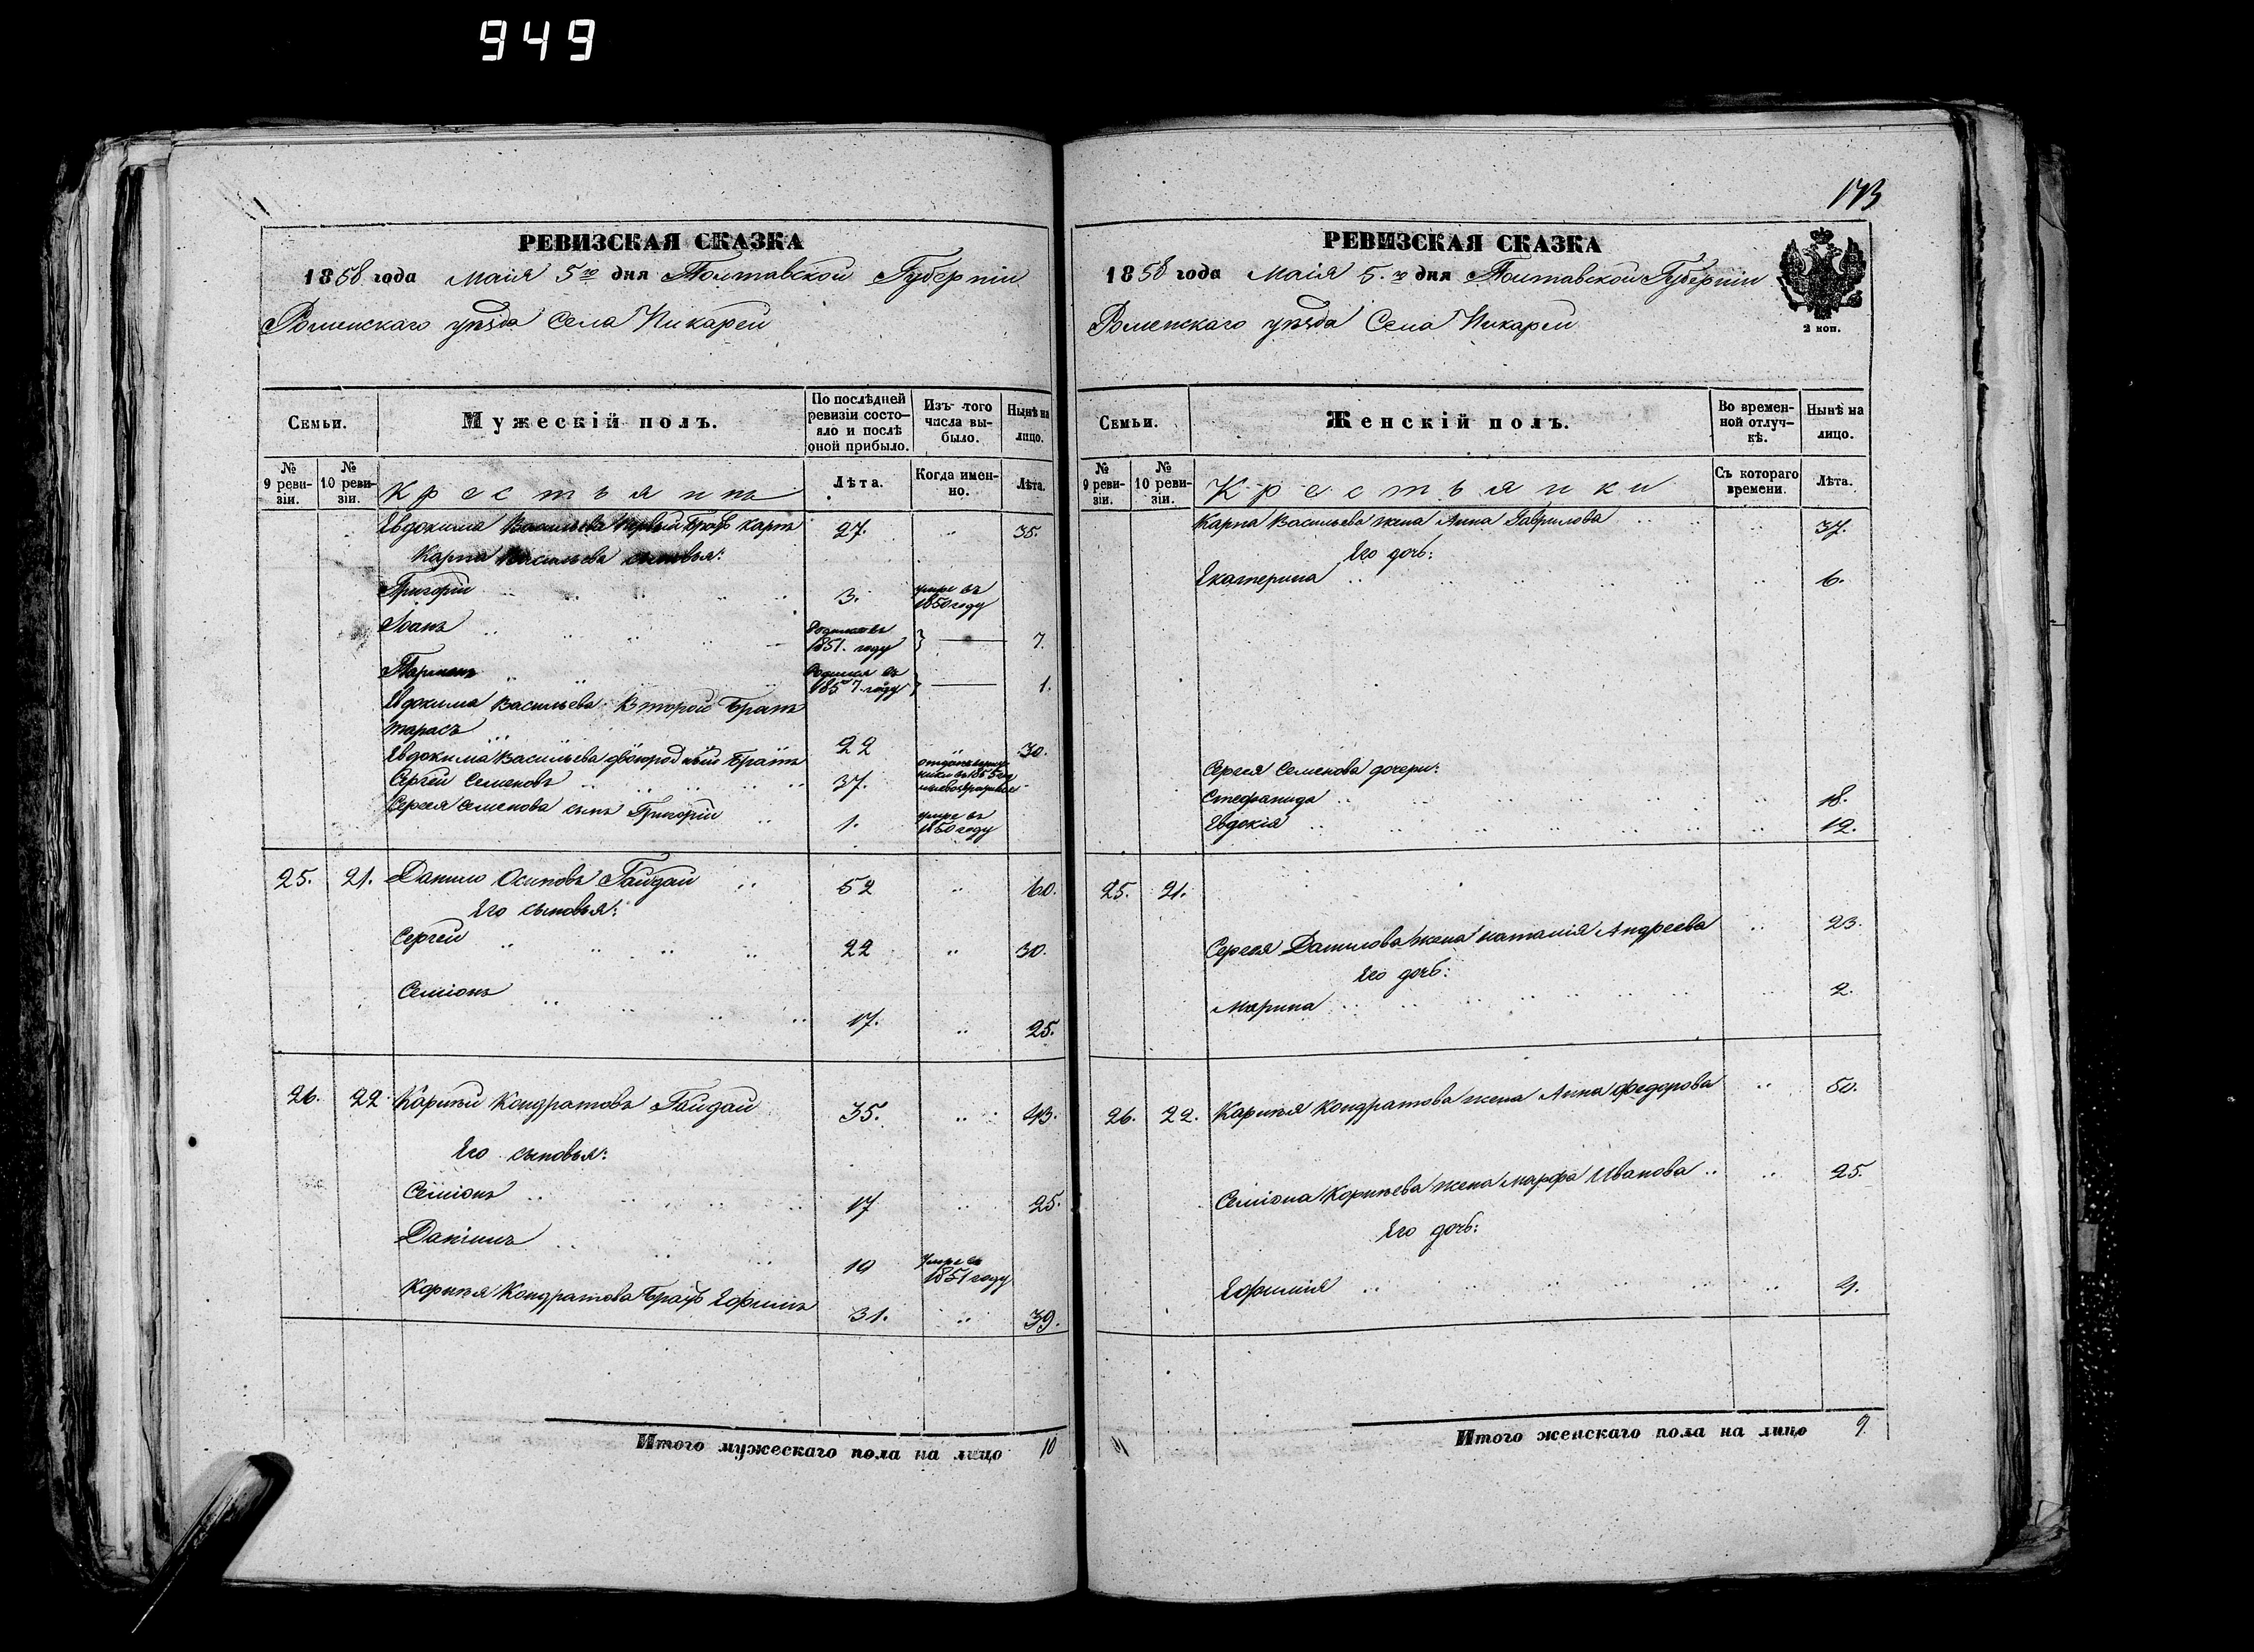 949
РЕВИЗСКАЯ СКАЗКА
1858 года Маія 5го дня Полтавской Губерніи
Роменскаго уѣзда Села Пикареи
Семьи.
Мужескій полъ.
По послѣдней ревизіи состо-
яло и послѣ оной прибыло.
Изъ того числа вы-
было.
Нынѣ на лицо.
№ 9 реви-
зіи.
№ 10 реви-
зіи.
Крестьянъ
Лѣта.
Когда имен-
но.
Лѣта.
Евдокима Васильева первый братъ Карпъ 27. " 35.
Карпа Васильева сыновья:
Григорій 3. умре въ 1850 году
Іоанъ родился въ 1851. году 7.
Парменъ родился въ 1857. году 1.
Евдокима Васильева Второй братъ
Тарасъ 22 30.
Евдокима Васильева двоюродный братъ
Сергей Семеновъ 37. 1855
Сергея Семенова сынъ Григорій 1. умре въ 1850 году
25. 21. Данило Осиповъ Гайдай 52 " 60.
Его сыновья:
Сергей 22 " 30.
Семіонъ 17. " 25.
26. 22. Корнѣй Кондратовъ Гайдай 35. " 43.
Его сыновья:
Семіонъ 17 " 25.
Даніилъ 10 Умре въ 1851 году
Корнѣя Кондратова братъ Ефимъ 31. " 39.
Итого мужескаго пола на лицо 10
173
РЕВИЗСКАЯ СКАЗКА
1858 года Маія 5.го дня Полтавской Губерніи
Роменскаго уѣзда Села Пикареи
2 коп.
Семьи.
Женскій полъ.
Во времен-
ной отлуч-
кѣ.
Нынѣ на лицо.
№ 9 реви-
зіи.
№ 10 реви-
зіи.
Крестьянки
Съ котораго времени.
Лѣта.
Карпа Васильева жена Анна Гаврилова " 37.
Его дочь:
Екатерина " 6.
Сергея Семенова дочери:
Стефанида " 18.
Евдокія " 12.
25. 21.
Сергея Данилова жена Наталія Андреева " 23.
Его дочь:
Марина " 2.
26. 22. Корнѣя Кондратова жена Анна Федорова " 50.
Семіона Корнѣева жена Марфа Иванова " 25.
Его дочь:
Ефимія " 4.
Итого женскаго пола на лицо 9